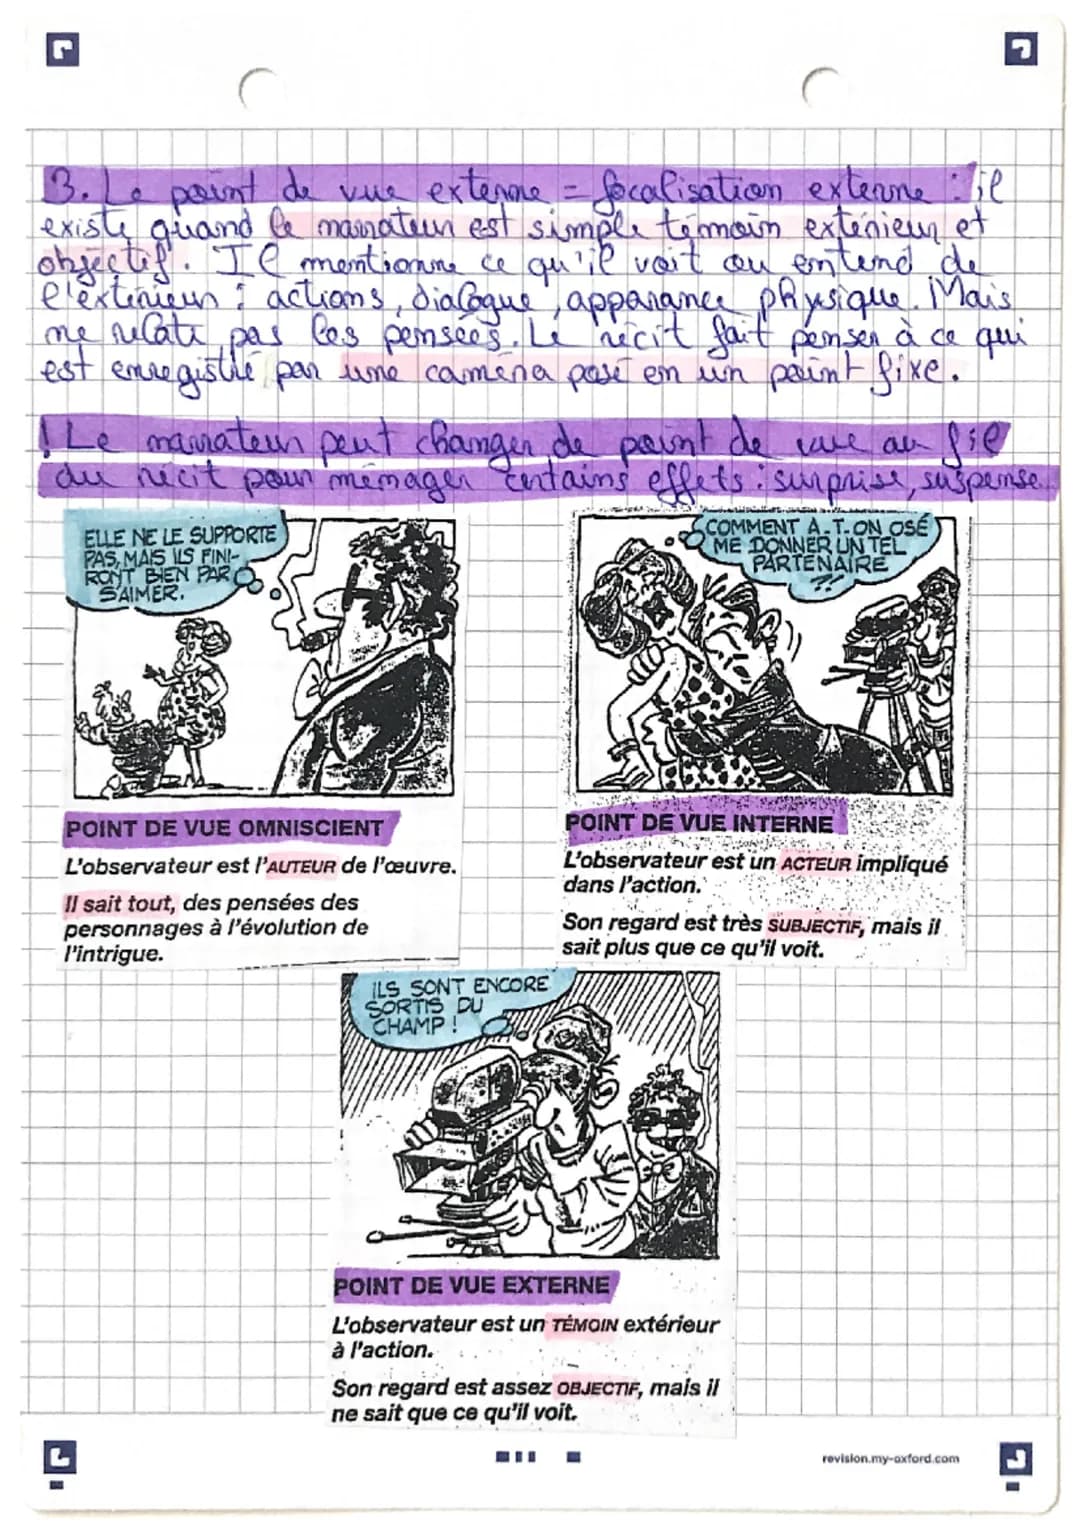 3. Le point de vue externe = focalisation externe : il
existe quand le narrateur est simple témoin extérieur et
objectif. Il mentionne ce qu'il voit ou entend de
l'extérieur : actions, dialogue, apparance physique. Mais
ne relate pas les pensées. Le récit fait penser à ce qui
est enregistré par une caméra posé en un point fixe.
! Le narrateur peut changer de point de vue au fil
du récit pour ménager certains effets : surprise, suspense...
ELLE NE LE SUPPORTE
PAS, MAIS ILS FINI-
RONT BIEN PAR
S'AIMER.
COMMENT A.T.ON OSÉ
ME DONNER UN TEL
PARTENAIRE
?!
POINT DE VUE OMNISCIENT
L'observateur est l'AUTEUR de l'œuvre.
Il sait tout, des pensées des
personnages à l'évolution de
l'intrigue.
POINT DE VUE INTERNE
L'observateur est un ACTEUR impliqué
dans l'action.
Son regard est très SUBJECTIF, mais il
sait plus que ce qu'il voit.
ILS SONT ENCORE
SORTIS DU
CHAMP !
POINT DE VUE EXTERNE
L'observateur est un TÉMOIN extérieur
à l'action.
Son regard est assez OBJECTIF, mais il
ne sait que ce qu'il voit.
revision.my-oxford.com